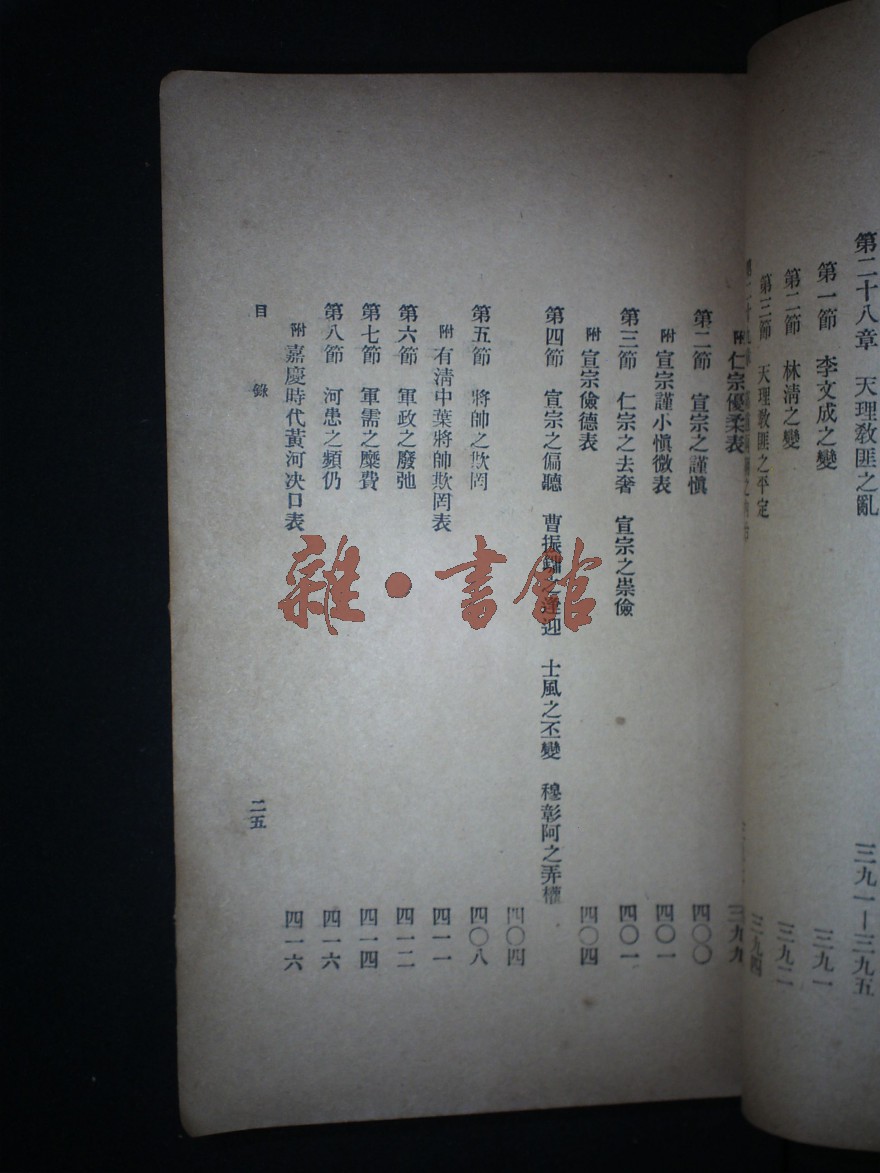 第二十八章　天理教匪之亂　三九一—三九五
第一節　李文成之變　三九一
第二節　林清之變　三九二
第三節　天理教匪之平定　三九四
附　仁宗優柔表　三九九
第二節　宣宗之謹慎　四〇〇
附　宣宗謹小慎微表　四〇一
第三節　仁宗之去奢　宣宗之崇儉　四〇一
附　宣宗儉德表　四〇四
第四節　宣宗之偏聽　曹振鏞之逢迎　士風之丕變　穆彰阿之弄權　四〇四
第五節　將帥之欺罔　四〇八
附　有清中葉將帥欺罔表　四一一
第六節　軍政之廢弛　四一二
第七節　軍需之糜費　四一四
第八節　河患之頻仍　四一六
附　嘉慶時代黃河決口表　四一六
目錄　二五
雜·書館